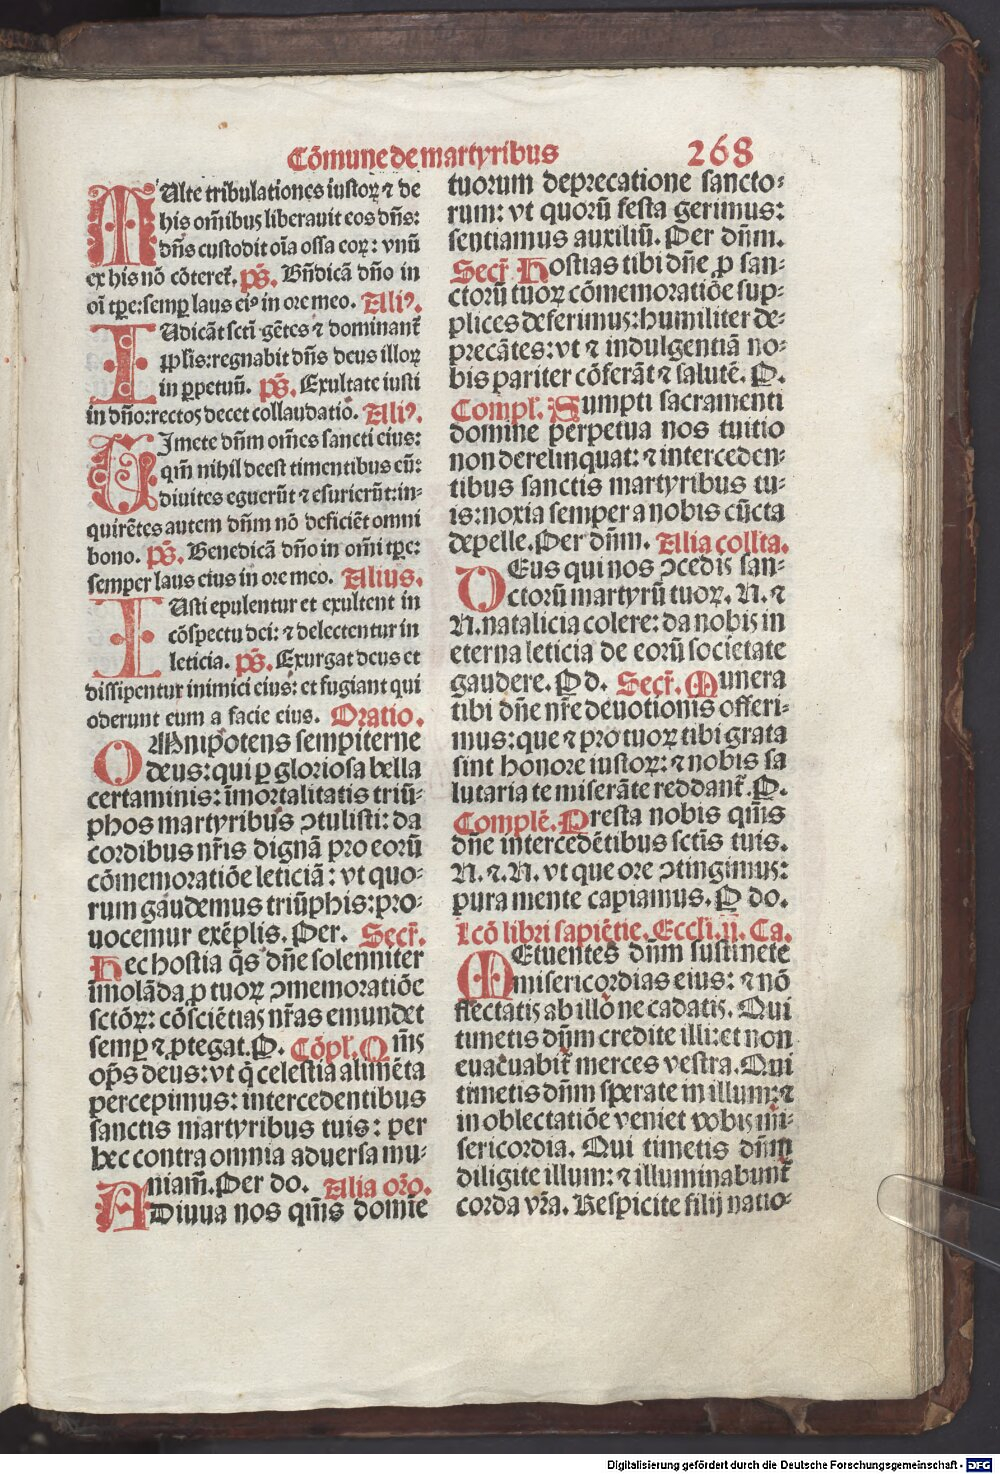 Cõmune de martyribus 268
MUlte tribulationes iustoꝝ ⁊ de
his om̃ibus liberauit eos dñs:
dñs custodit oĩa ossa eoꝝ: vnũ
ex his nõ cõteret᷑. p̃s. Bñdicã dño in
oĩ tp̃e: semꝑ laus eiꝰ in ore meo. Aliꝰ.
IUdicãt sctĩ gẽtes ⁊ dominant᷑
pp̃lis: regnabit dñs deus illoꝝ
in ꝑpetuũ. p̃s. Exultate iusti
in dño: rectos decet collaudatio. Aliꝰ.
TImete dñm om̃es sancti eius:
qm̃ nihil deest timentibus eũ:
diuites eguerũt ⁊ esurierũt: in⸗
quirẽtes autem dñm nõ deficiẽt omni
bono. p̃s. Benedicã dño in om̃i tp̃e:
semper laus eius in ore meo. Alius.
IUsti epulentur et exultent in
cõspectu dei: ⁊ delectentur in
leticia. p̃s. Exurgat deus et
dissipentur inimici eius: et fugiant qui
oderunt eum a facie eius. Oratio.
OMnipotens sempiterne
deus: qui ꝑ gloriosa bella
certaminis: ĩmortalitatis triũ⸗
phos martyribus ↄtulisti: da
cordibus nr̃is dignã pro eorũ
cõmemoratiõe leticiã: vt quo⸗
rum gaudemus triũphis: pro⸗
uocemur exẽplis. Per. Secr̃.
Hec hostia q̃s dñe solenniter
ĩmolãda ꝓ tuoꝝ ↄmemoratiõe
sctõꝝ: cõsciẽtias nr̃as emundet
semꝑ ⁊ ꝓtegat. P. Cõpl̃. Qm̃s
op̃s deus: vt q̃ celestia alimẽta
percepimus: intercedentibus
sanctis martyribus tuis: per
hec contra omnia aduersa mu⸗
niam̃. Per do. Alia or̃o.
ADiuua nos qm̃s domĩe
tuorum deprecatione sancto⸗
rum: vt quorũ festa gerimus:
sentiamus auxiliũ. Per dñm.
Secr̃. Hostias tibi dñe ꝓ san⸗
ctorũ tuoꝝ cõmemoratiõe sup⸗
plices deferimus: humiliter de⸗
precãtes: vt ⁊ indulgentiã no⸗
bis pariter cõferãt ⁊ salutẽ. P.
Compl̃. Sumpti sacramenti
domine perpetua nos tuitio
non derelinquat: ⁊ interceden⸗
tibus sanctis martyribus tu⸗
is: noxia semper a nobis cũcta
depelle. Per dñm. Alia collta.
DEus qui nos ↄcedis san⸗
ctorũ martyrũ tuoꝝ. N. ⁊
N. natalicia colere: da nobis in
eterna leticia de eorũ societate
gaudere. P d. Secr̃. Munera
tibi dñe nr̃e deuotionis offeri⸗
mus: que ⁊ pro tuoꝝ tibi grata
sint honore iustoꝝ: ⁊ nobis sa
lutaria te miserãte reddant᷑. P.
Complẽ. Presta nobis qm̃s
dñe intercedẽtibus sctĩs tuis.
N. ⁊. N. vt que ore ↄtingimus:
pura mente capiamus. P do.
Lcõ libri sapiẽtie. Eccli. ij. Ca.
MEtuentes dñm sustinete
misericordias eius: ⁊ nõ
flectatis ab illo ne cadatis. Qui
timetis dñm credite illi: et non
euacuabit᷑ merces vestra. Qui
timetis dñm sperate in illum: ⁊
in oblectatiõe veniet vobis mi⸗
sericordia. Qui timetis dñm
diligite illum: ⁊ illuminabunt᷑
corda vr̃a. Respicite filij natio⸗
Digitalisierung gefördert durch die Deutsche Forschungsgemeinschaft - DFG